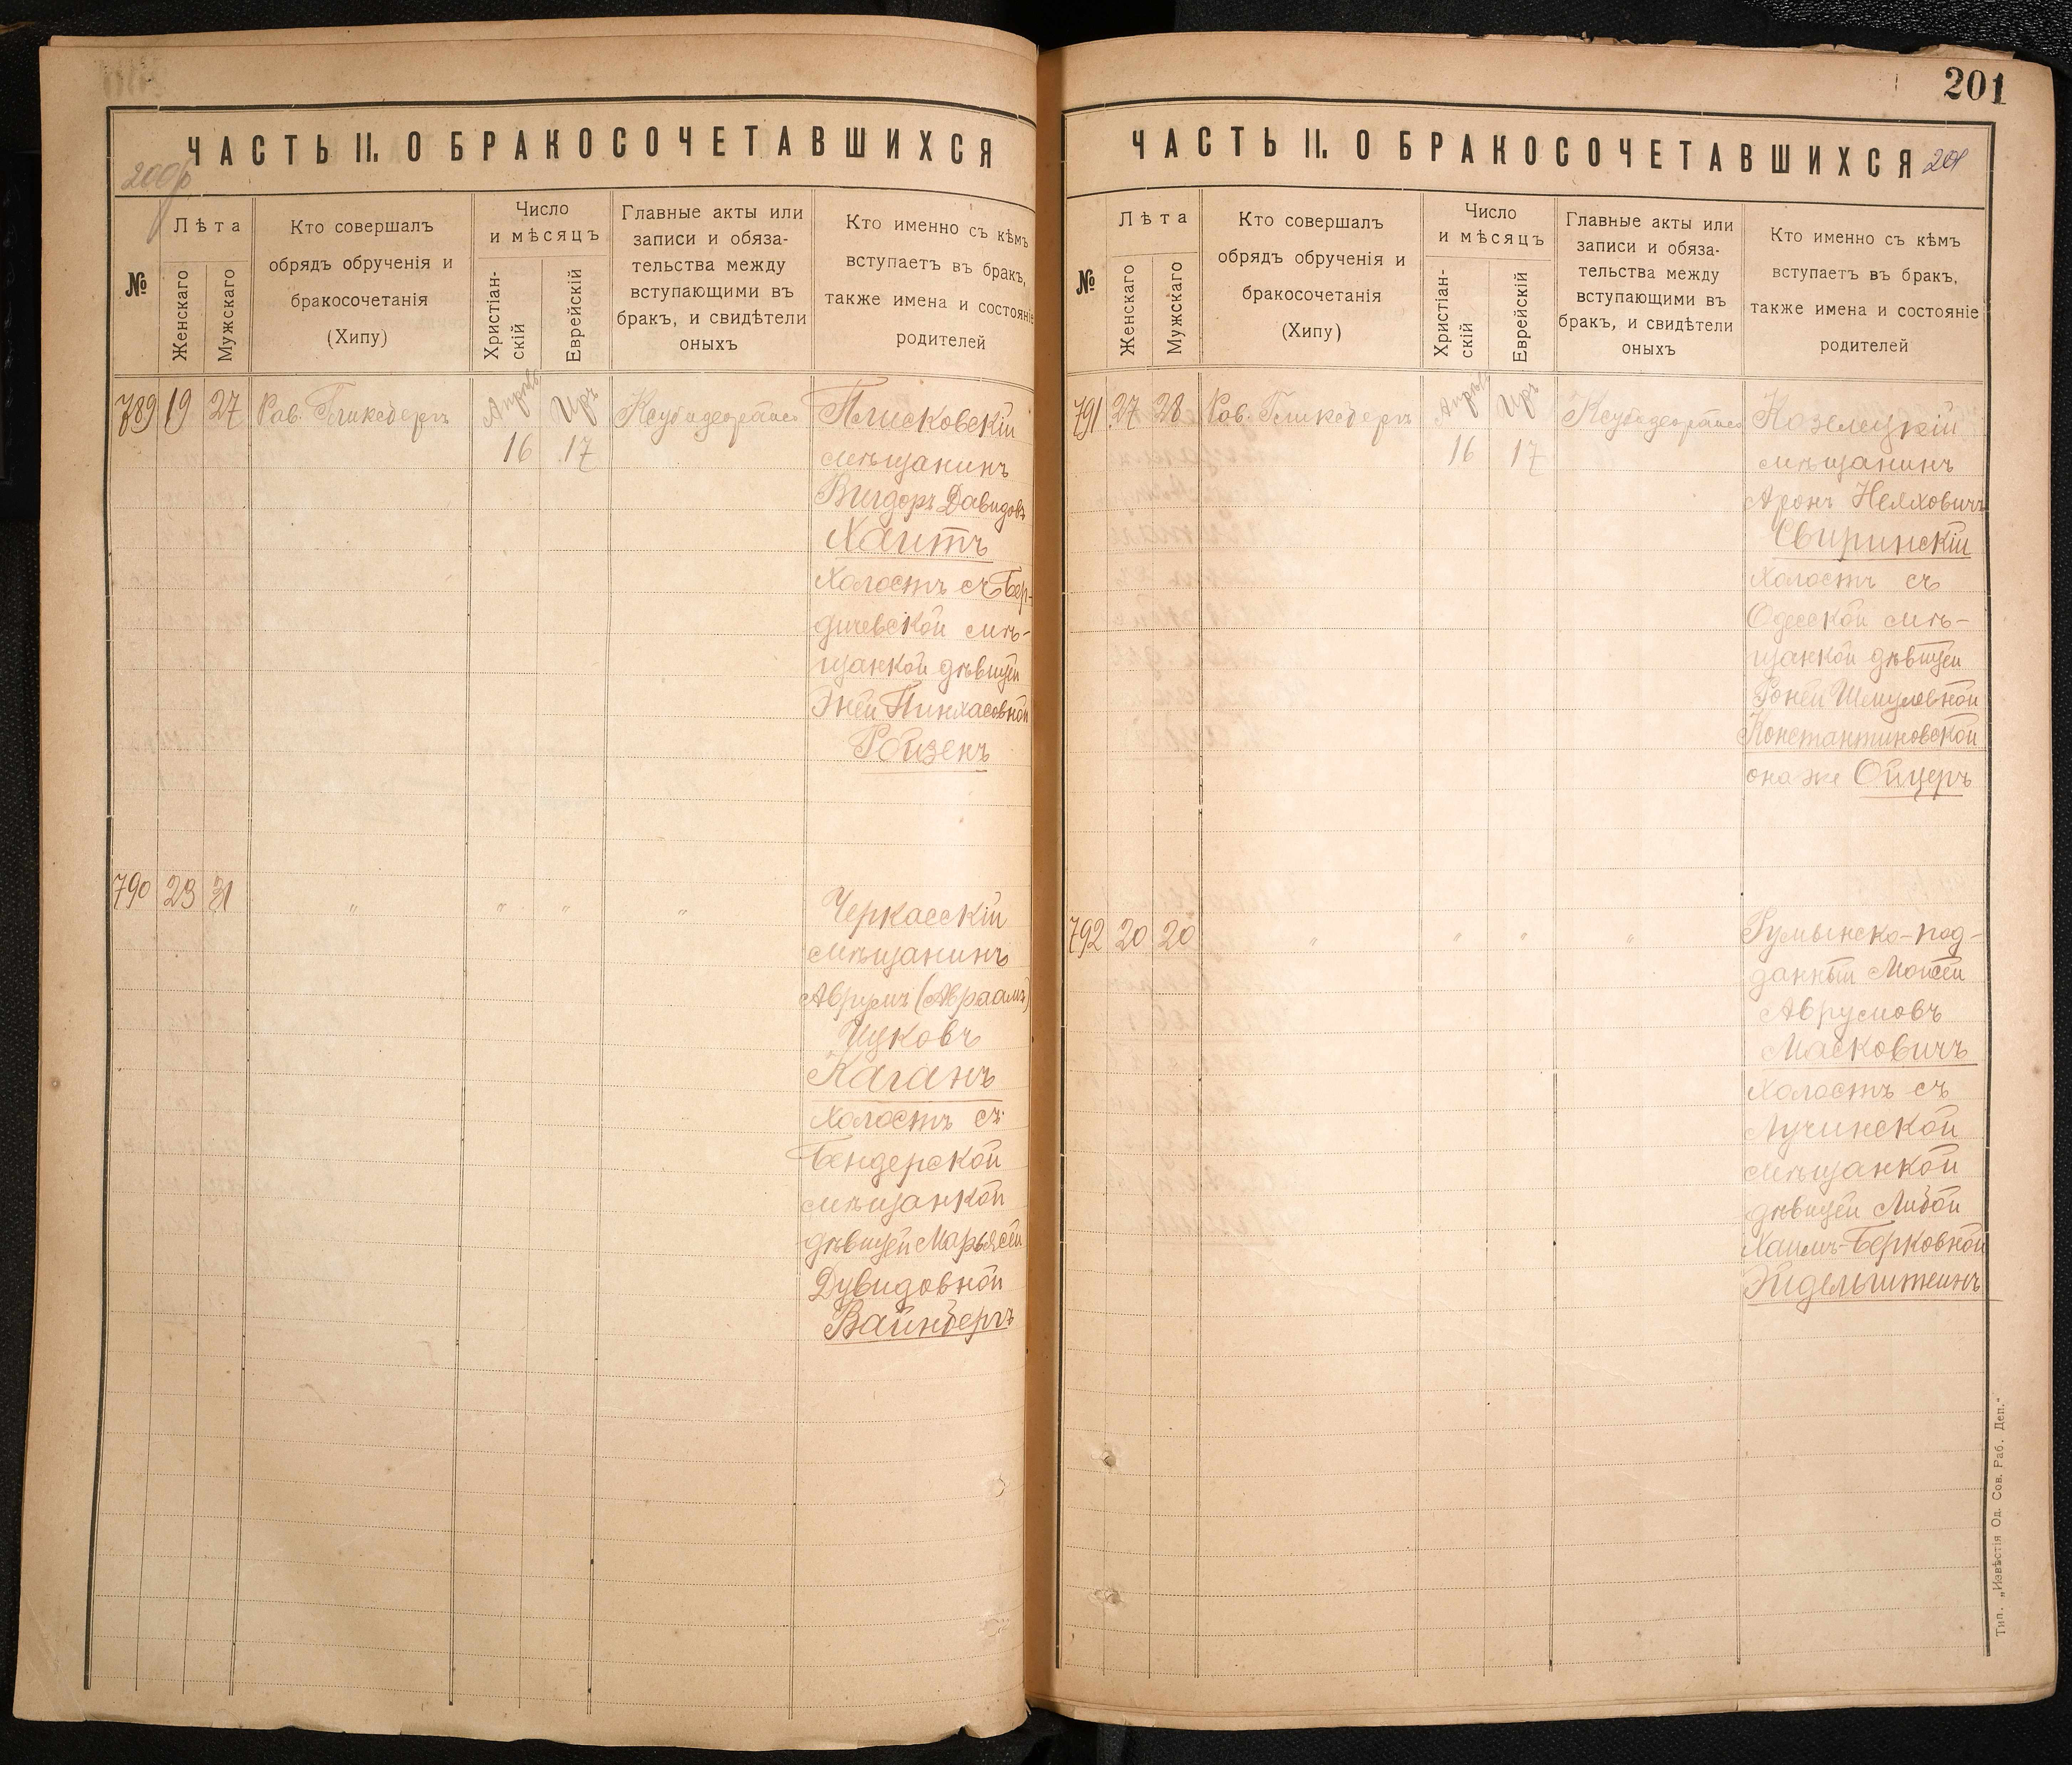 ЧАСТЬ II. О БРАКОСОЧЕТАВШИХСЯ
№
Лѣта
Женскаго
Мужскаго
Кто совершалъ
обрядъ обрученія и
бракосочетанія
(Хипу)
Число
и мѣсяцъ
Христіан-
скій
Еврейскій
Главные акты или
записи и обяза-
тельства между
вступающими въ
бракъ, и свидѣтели
оныхъ
Кто именно съ кѣмъ
вступаетъ въ бракъ,
также имена и состояніе
родителей
789 19 27 Рав. Гликсбергъ
Апрѣль
Иръ
16 17
Плисковскій
мѣщанинъ
Вигдоръ Давидовъ
Хаитъ
холостъ съ Бер-
дичевской мѣ-
щанкой дѣвицей
Эней Пинхасовной
Ройзенъ
790 23 31 " " " "
Черкасскій
мѣщанинъ
Аврумъ (Авраамъ)
Ицковъ
Каганъ
холостъ съ
Бендерской
мѣщанкой
дѣвицей Марьясей
Дувидовной
Вайнбергъ
201
ЧАСТЬ II. О БРАКОСОЧЕТАВШИХСЯ 201
№
Лѣта
Женскаго
Мужскаго
Кто совершалъ
обрядъ обрученія и
бракосочетанія
(Хипу)
Число
и мѣсяцъ
Христіан-
скій
Еврейскій
Главные акты или
записи и обяза-
тельства между
вступающими въ
бракъ, и свидѣтели
оныхъ
Кто именно съ кѣмъ
вступаетъ въ бракъ,
также имена и состояніе
родителей
791 27 28 Рав. Гликсбергъ
Апрѣль
Иръ
16 17
Козелецкій
мѣщанинъ
Аронъ Неяховичъ
Свиринскій
холостъ съ
Одесской мѣ-
щанкой дѣвицей
Роней Шмулевной
Константиновской
она же Ойцеръ
792 20 20 " " " "
Румынско-под-
данный Мойсей
Аврумовъ
Масковичъ
холостъ съ
Лучинской
мѣщанкой
дѣвицей Либой
Хаимъ-Берковной
Эйдельштейнъ
Тип. „Извѣстія Од. Сов. Раб. Деп."